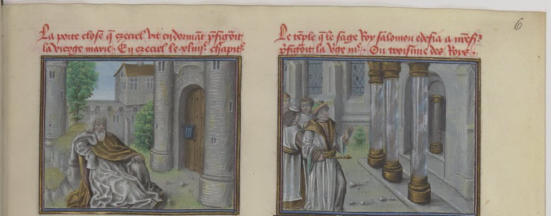 La porte close q̄ ezeciel vit en dormāt p̄figuroit
la vierge marie. En ezeciel le xliiijͤ chapitͤ
Le tēple q̄ le sage Roy salomon edefia a
p̄figuroit la v̄ge mͤ. Ou troisime des Rois
6